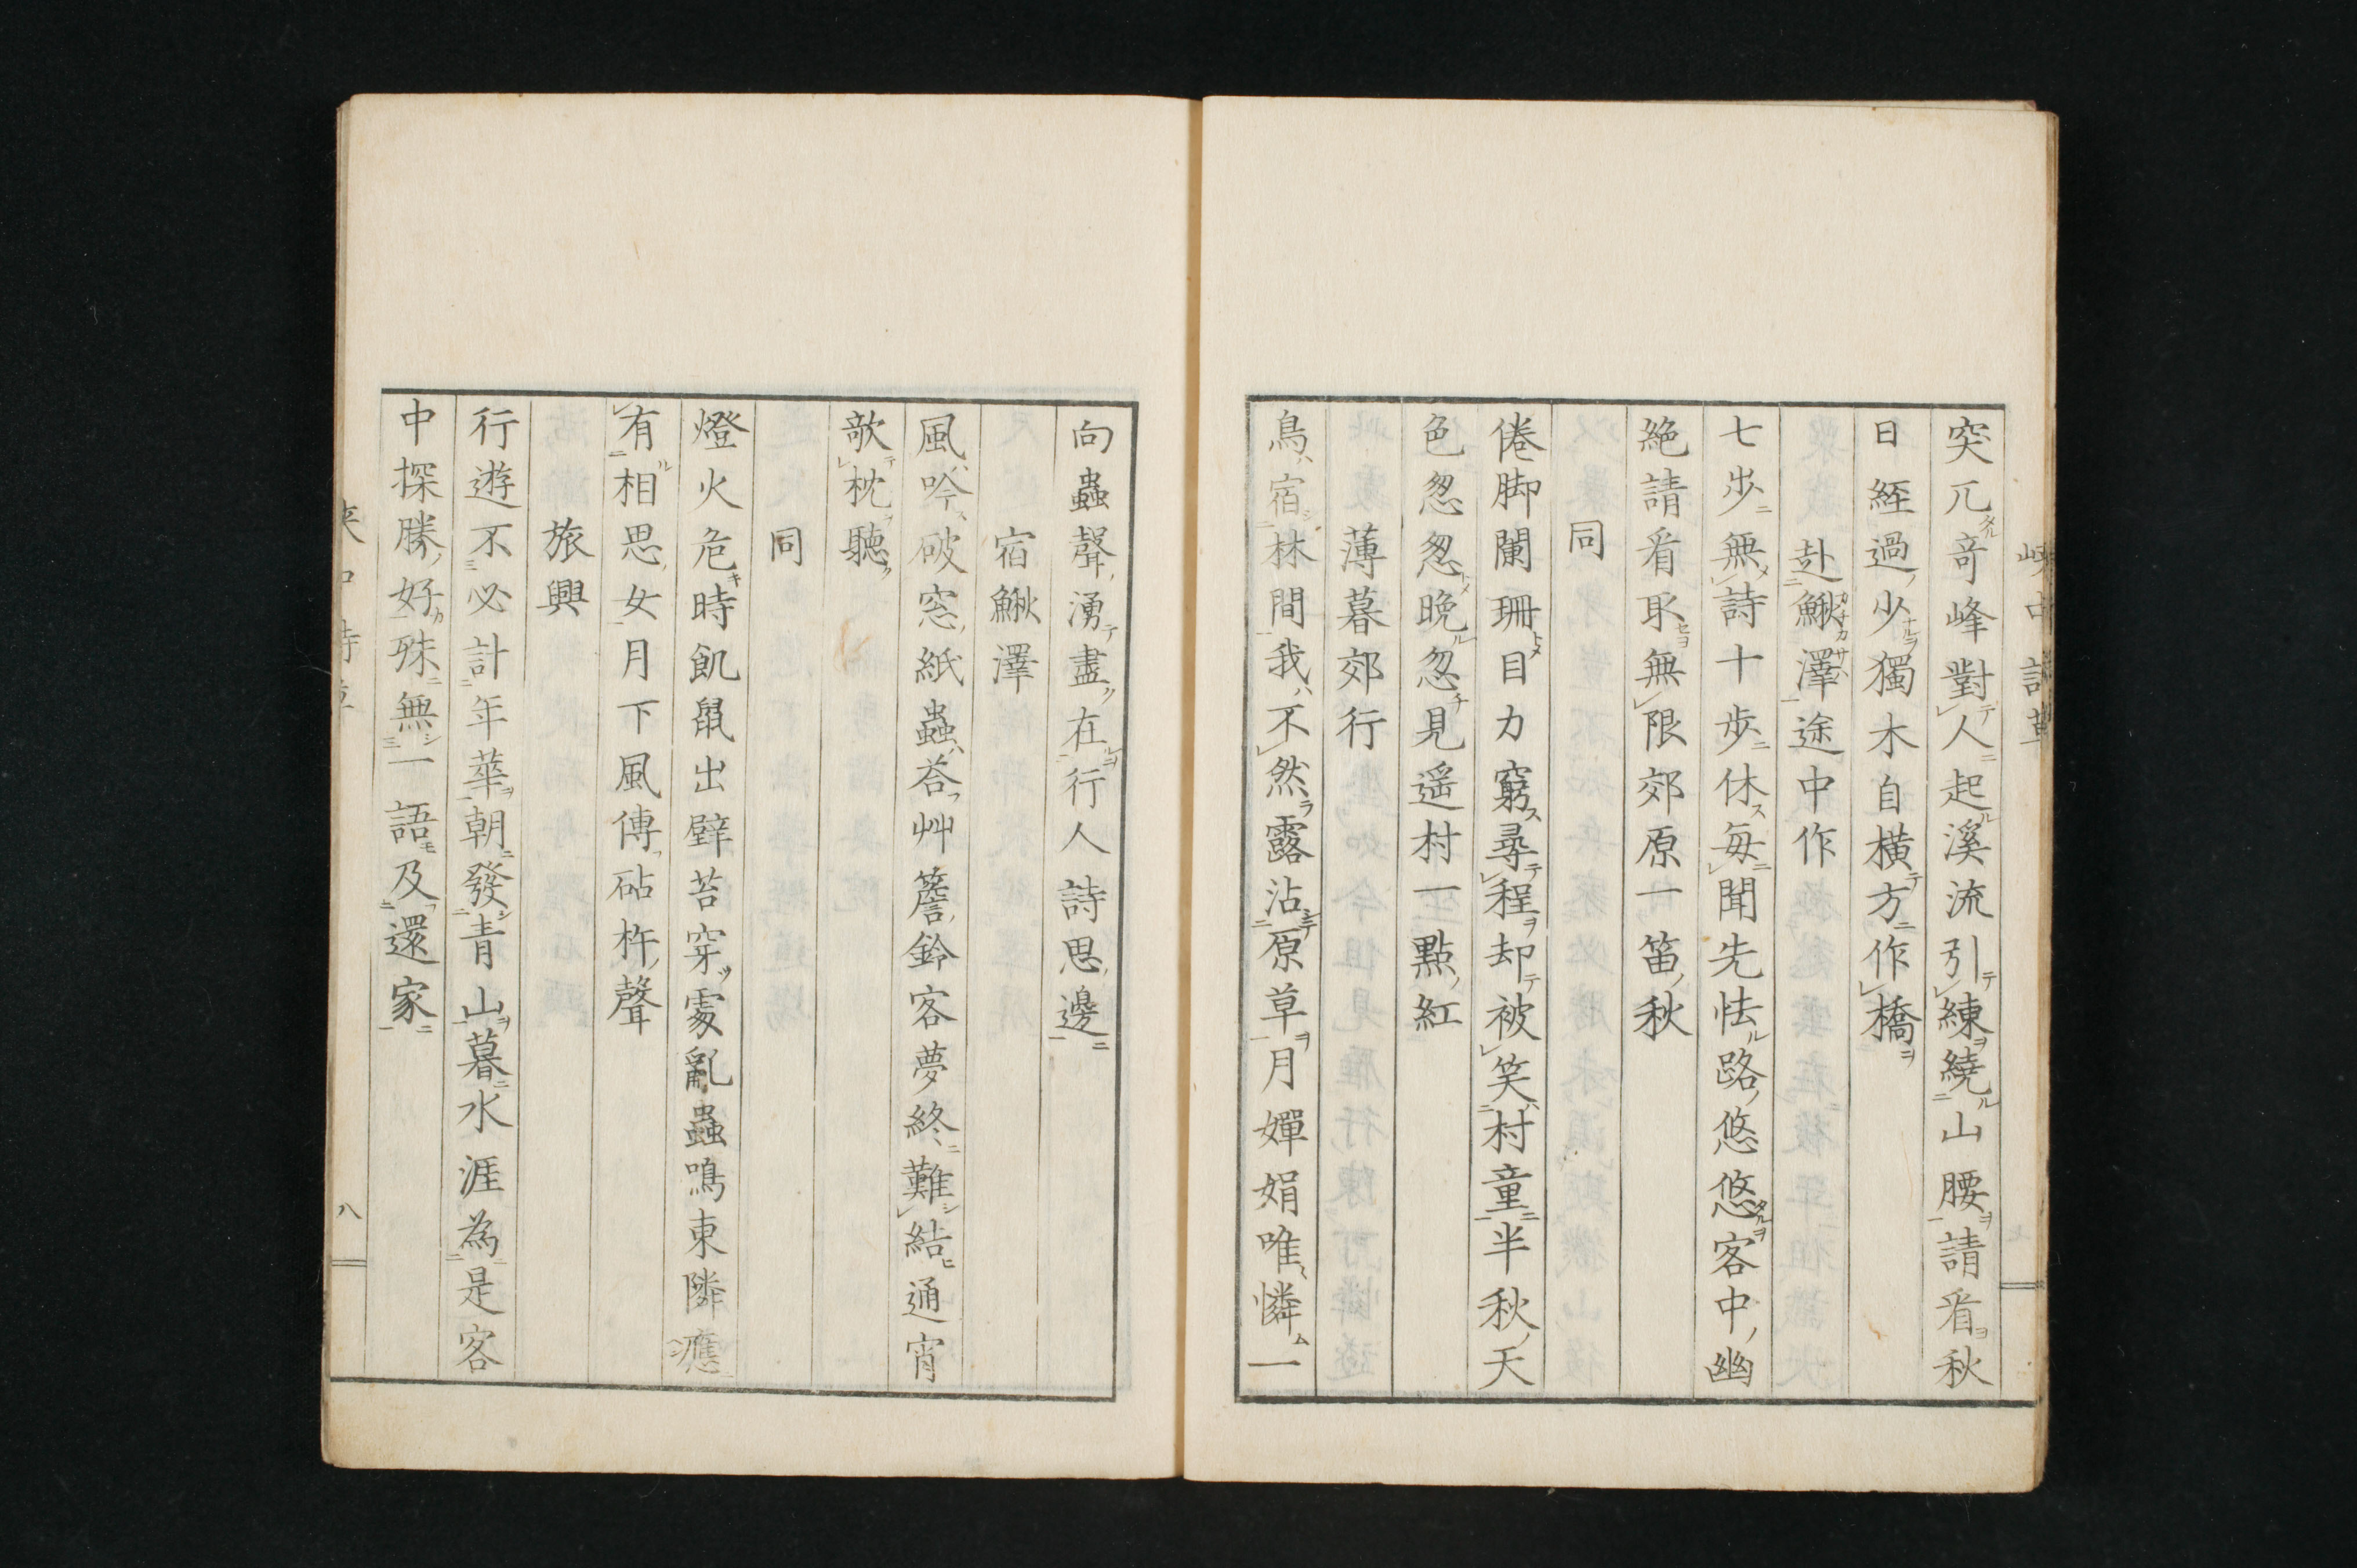 峽中詩草
突兀奇峰對人起溪流引練繞山腰請看秋
日經過少獨木自橫方作橋
赴鰍澤途中作
七步無詩十步休每聞先怯路悠悠客中幽
絶請看取無限郊原一笛秋
同
倦脚闌珊目力窮尋程却被笑村童半秋天
色怱怱晚忽見遥村一點紅
薄暮郊行
鳥宿林間我不然露沾原草月嬋娟唯憐一
向蟲聲湧盡在行人詩思邊
宿鰍澤
風吟破窓紙蟲荅艸簷鈴客夢終難結通宵
欹枕聽
同
燈火危時飢鼠出壁苔穿處亂蟲鳴東隣應
有相思女月下風傳砧杵聲
旅興
行遊不必計年華朝發青山暮水涯為是客
中探勝好殊無一語及還家
八